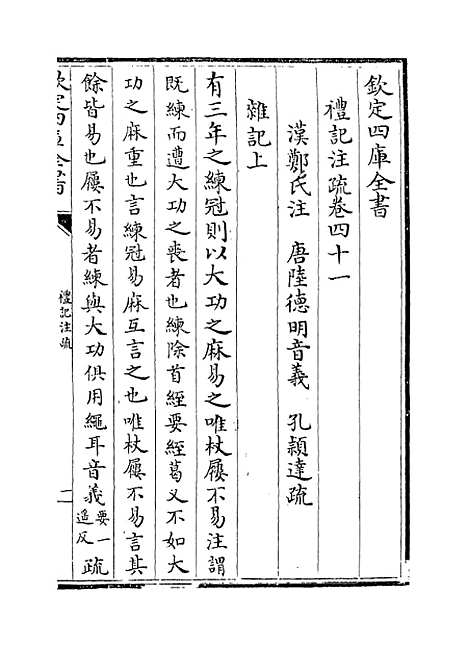 欽定四庫全書
禮記注疏卷四十一
漢鄭氏注　唐陸德明音義　孔穎達疏
雜記上
有三年之練冠則以大功之麻易之唯杖屨不易注謂
既練而遭大功之喪者也練除首絰要絰葛又不如大
功之麻重也言練冠易麻互言之也唯杖屨不易言其
餘皆易也屨不易者練與大功俱用繩耳音義要一遙反疏
欽定四庫全書
禮記注疏